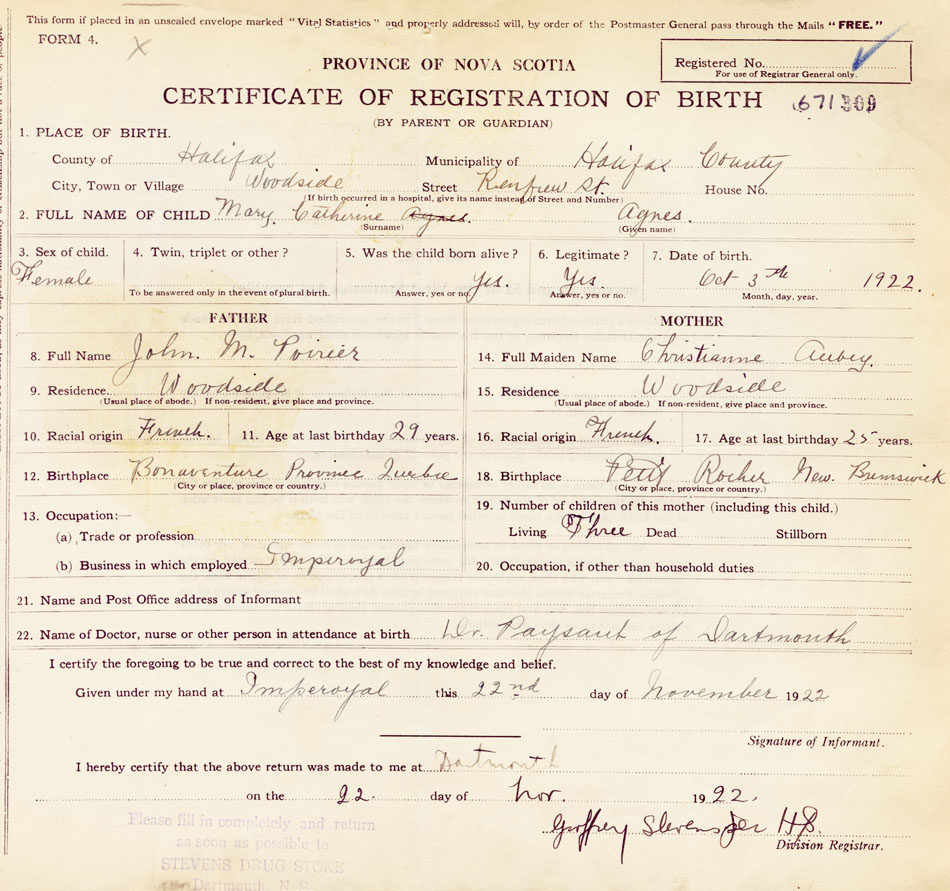 This form if placed in an unsealed envelope marked "Vital Statistics" and properly addressed will, by order of the Postmaster General pass through the Mails "FREE."
FORM 4. X
PROVINCE OF NOVA SCOTIA
Registered No.
For use of Registrar General only.
CERTIFICATE OF REGISTRATION OF BIRTH
671300
(BY PARENT OR GUARDIAN)
1. PLACE OF BIRTH.
County of Halifax Municipality of Halifax County
City, Town or Village Woodside Street Renfrew St. House No.
(If birth occurred in a hospital, give its name instead of Street and Number)
2. FULL NAME OF CHILD Mary Catherine Agnes. Agnes.
(Surname) (Given name)
3. Sex of child. Female
4. Twin, triplet or other?
To be answered only in the event of plural birth.
5. Was the child born alive? Yes.
Answer, yes or no.
6. Legitimate? Yes.
Answer, yes or no.
7. Date of birth. Oct 3th 1922.
Month, day, year.
FATHER
8. Full Name John. M. Poirier
9. Residence. Woodside
(Usual place of abode.) If non-resident, give place and province.
10. Racial origin French. 11. Age at last birthday 29 years.
12. Birthplace Bonaventure Province Qurbie
(City or place, province or country.)
13. Occupation:—
(a) Trade or profession
(b) Business in which employed Imperoyal
MOTHER
14. Full Maiden Name Christianne Aubey.
15. Residence Woodside
(Usual place of abode.) If non-resident, give place and province.
16. Racial origin French. 17. Age at last birthday 25 years.
18. Birthplace Petit Rocher New. Brunswick
(City or place, province or country.)
19. Number of children of this mother (including this child.)
Living Three Dead Stillborn
20. Occupation, if other than household duties
21. Name and Post Office address of Informant
22. Name of Doctor, nurse or other person in attendance at birth Dr. Paysant of Dartmouth
I certify the foregoing to be true and correct to the best of my knowledge and belief.
Given under my hand at Imperoyal this 22nd day of November 1922
Signature of Informant.
I hereby certify that the above return was made to me at Dartmouth
on the 22. day of Nov. 1922.
Geoffrey Stevens per HS.
Division Registrar.
Please fill in completely and return
as soon as possible to
STEVENS DRUG STORE
Dartmouth, N. S.